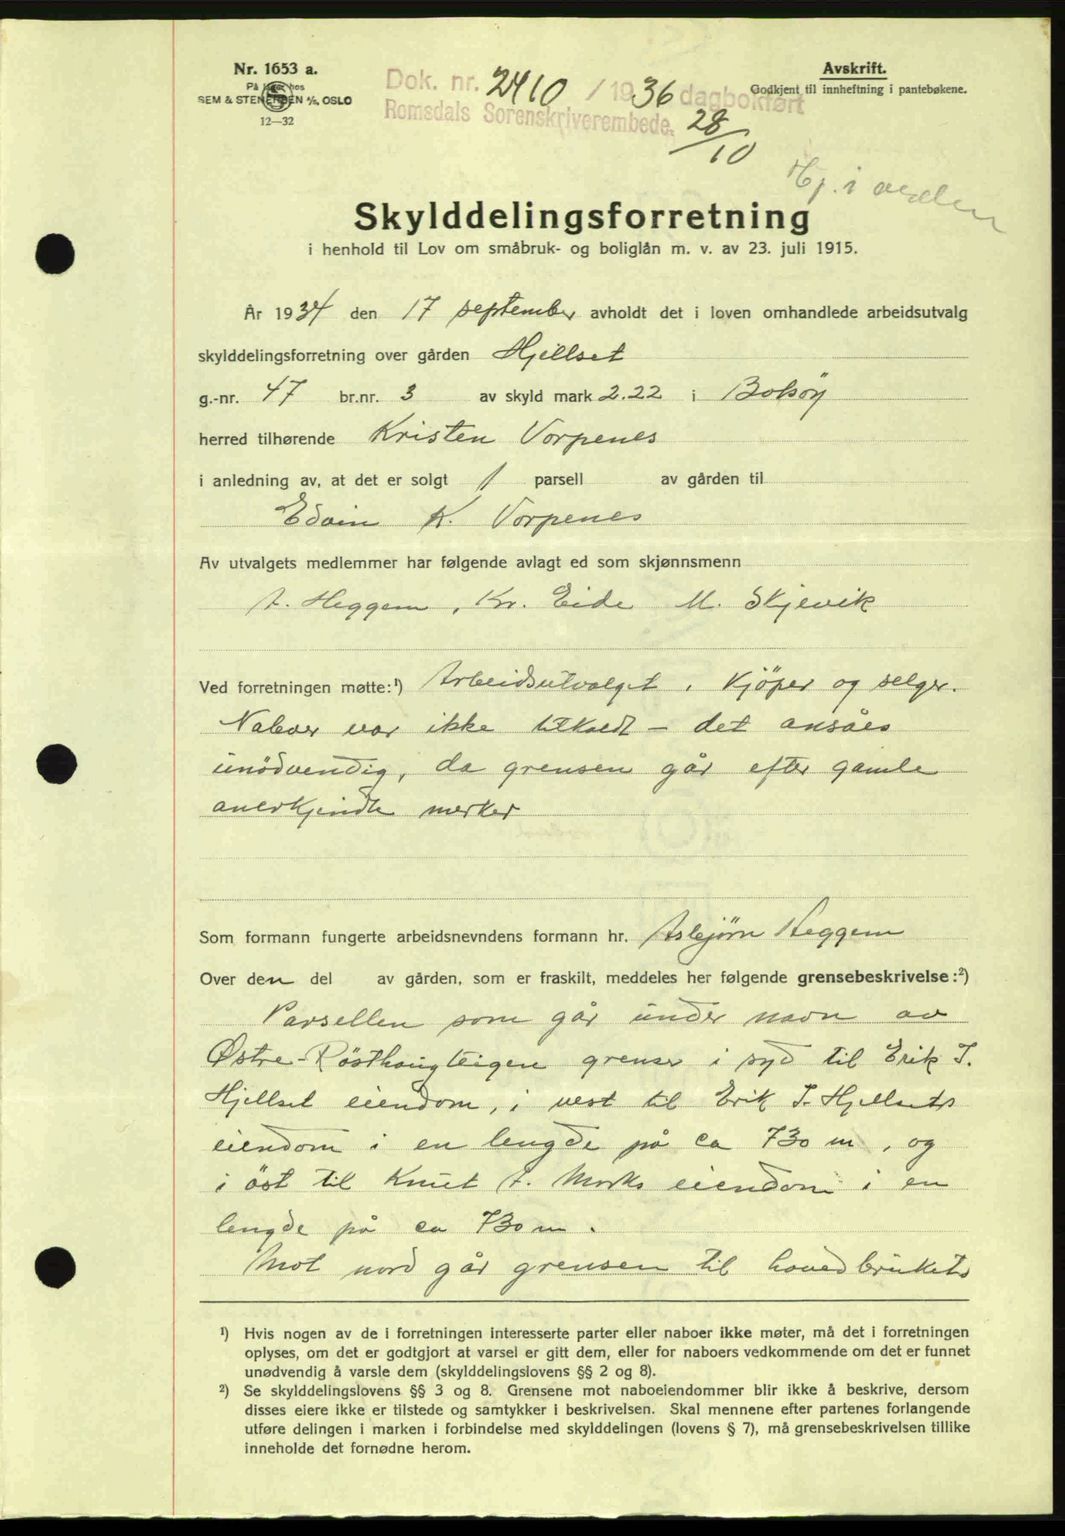 Nr. 1653 a.
På lager hos
SEM & STENERSEN A/S, OSLO
12—32
Dok. nr. 2410 / 1936 dagbokført
Romsdals Sorenskriverembede. 28/10
Avskrift.
Godkjent til innheftning i pantebøkene.
Hj. i
Skylddelingsforretning
i henhold til Lov om småbruk- og boliglån m. v. av 23. juli 1915.
År 1934 den 17 september avholdt det i loven omhandlede arbeidsutvalg
skylddelingsforretning over gården Hjellset
g.-nr. 47 br.nr. 3 av skyld mark 2.22 i Bolsöy
herred tilhørende Kristen Vorpenes
i anledning av, at det er solgt 1 parsell av gården til
Edvin K. Vorpenes
Av utvalgets medlemmer har følgende avlagt ed som skjønnsmenn
A. Heggem, Kr. Eide M. Skjevik
Ved forretningen møtte:¹) Arbeidsutvalget, kjöper og selger.
Naboer var ikke tilkaldt – det ansåes
unödvendig, da grensen går efter gamle
anerkjendte merker
Som formann fungerte arbeidsnevndens formann hr. Asbjørn Heggem
Over den del av gården, som er fraskilt, meddeles her følgende grensebeskrivelse:²)
Parsellen som går under navn av
Østre-Rösthaugteigen grenser i syd til Erik I.
Hjellset eiendom, i vest til Erik I. Hjellsets
eiendom i en lengde på ca 730 m, og
i öst til Knut A. Morks eiendom i en
lengde på ca 730 m.
Mot nord går grensen til hovedbrukets
¹) Hvis nogen av de i forretningen interesserte parter eller naboer ikke møter, må det i forretningen
oplyses, om det er godtgjort at varsel er gitt dem, eller for naboers vedkommende om det er funnet
unødvendig å varsle dem (skylddelingslovens §§ 2 og 8).
²) Se skylddelingslovens §§ 3 og 8. Grensene mot naboeiendommer blir ikke å beskrive, dersom
disses eiere ikke er tilstede og samtykker i beskrivelsen. Skal mennene efter partenes forlangende
utføre delingen i marken i forbindelse med skylddelingen (lovens § 7), må grensebeskrivelsen tillike
inneholde det fornødne herom.